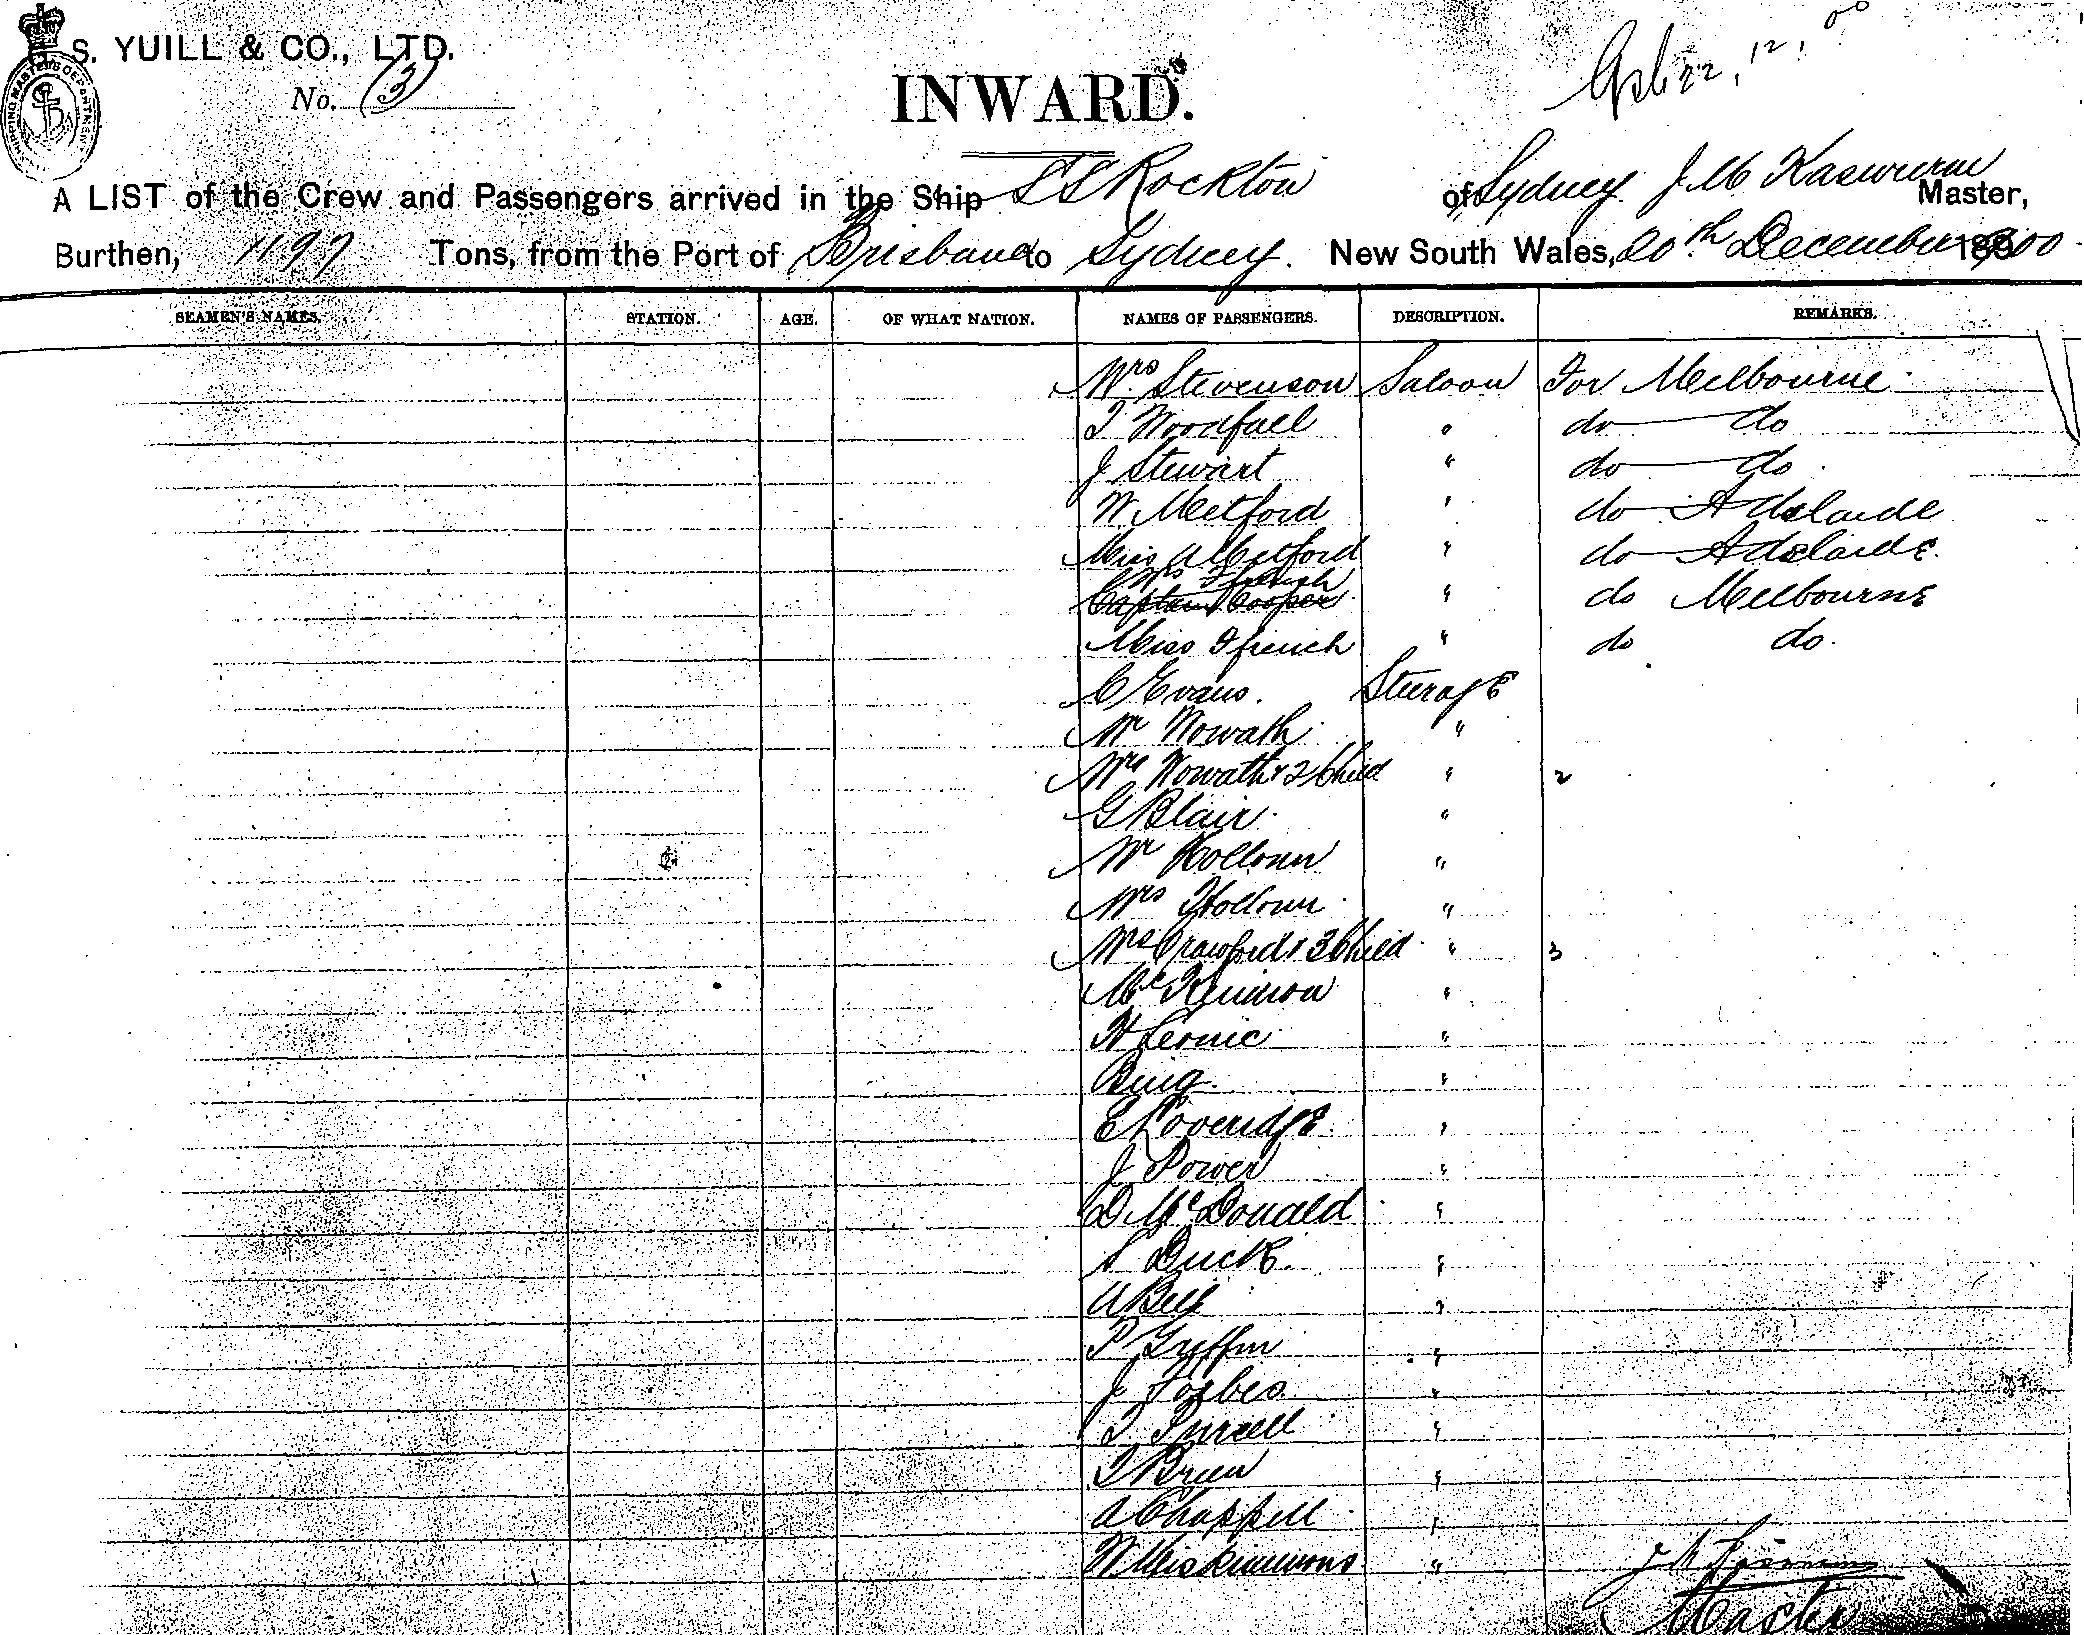 S. YUILL & CO., LTD.
No. (3)
INWARD.
22, 12, 00
A LIST of the Crew and Passengers arrived in the Ship SS Rockton of Sydney J. M. Master,
Burthen, 1197 Tons, from the Port of Brisbane to Sydney. New South Wales, 20th December 1900
SEAMEN'S NAMES. STATION. AGE. OF WHAT NATION. NAMES OF PASSENGERS. DESCRIPTION. REMARKS.
Mrs Stevenson Saloon For Melbourne
T Woodfall " do do
J Stewart " do do
W Metford " do Adelaide
Miss A Metford " do Adelaide
Mrs Ffrench
Captain Cooper " do Melbourne
Miss Ffrench " do do.
C Evans. Steerage
Mr Howath "
Mrs Howath & 2 Child " 2
G Blair "
Mr "
Mrs "
Mrs Crawford & 3 Child " 3
Mc Kinnon "
H "
Bing "
E Loveridge "
J Power "
D McDonald "
S Duck "
A Bell "
P Griffin "
J Forbes "
T "
T Breen "
A Chappell "
W Meiskimmons "
J M
Master